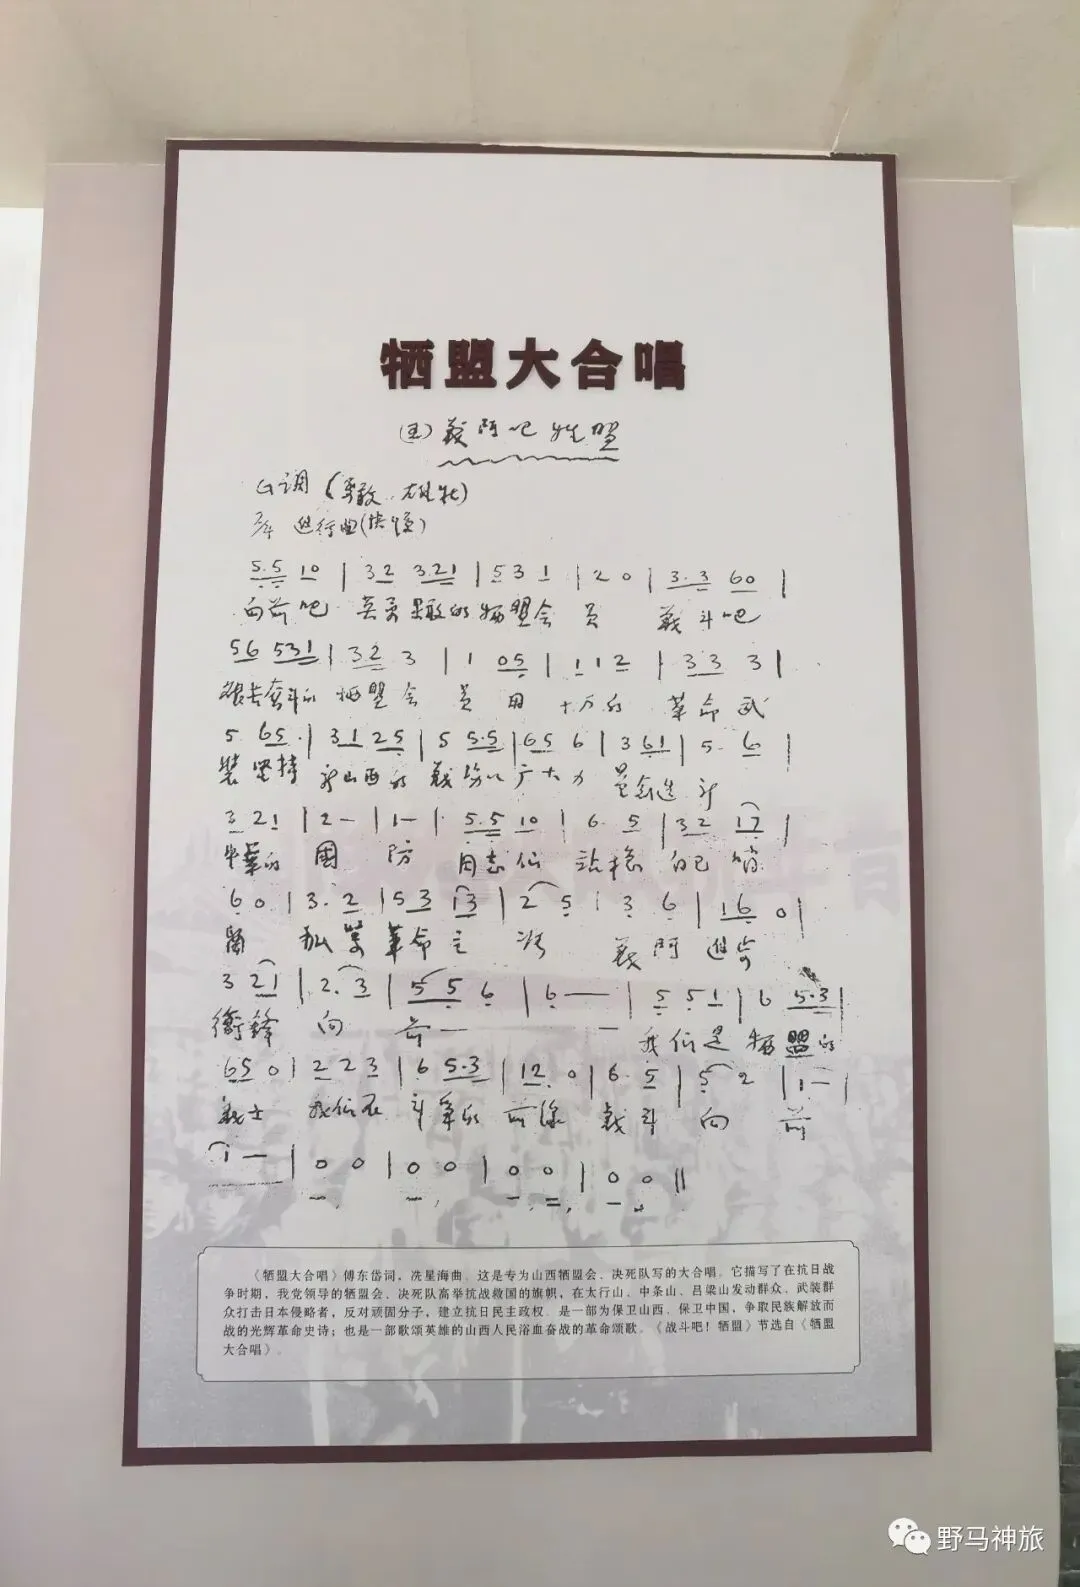 牺盟大合唱
(五) 战鬥吧牺盟
G调 (勇敢.雄壮)
2/4 进行曲(快慢)
5.5 10 | 32 3.21 | 531 | 20 | 3.3 60 |
向前吧 英勇果敢的牺盟会员 战斗吧
56 531 | 32 3 | 1 05 | 112 | 33 3 |
艰苦奋斗的 牺盟会员 用十万的 革命武
5 65. | 31 25 | 5 5.5 | 65 6 | 3 61 | 5. 6 |
装坚持 山西的 战场以广大力量创造新
3 21 | 2— | 1— | 5.5 10 | 6. 5 | 32 17 |
中华的 国防 同志们 站稳自己
6 0 | 3. 2 | 53 13 | 2 5 | 3 6 | 16 0 |
革命主 战鬥 进步
3 21 | 2. 3 | 5 5 6 | 6 —— | 5 51 | 6 5.3 |
衝鋒 向前— — 我们是 牺盟的
65 0 | 2 23 | 6 5.3 | 12. 0 | 6. 5 | 5 2 | 1— |
战士 我们在 斗争的 前線 战斗 向前
1 — | 0 0 | 0 0 | 0 0 | 0 0 ||
《牺盟大合唱》傅东岱词，冼星海曲。这是专为山西牺盟会、决死队写的大合唱。它描写了在抗日战
争时期，我党领导的牺盟会、决死队高举抗战救国的旗帜，在太行山、中条山、吕梁山发动群众、武装群
众打击日本侵略者，反对顽固分子，建立抗日民主政权。是一部为保卫山西、保卫中国，争取民族解放而
战的光辉革命史诗；也是一部歌颂英雄的山西人民浴血奋战的革命颂歌。《战斗吧！牺盟》节选自《牺盟
大合唱》。
野马神旅